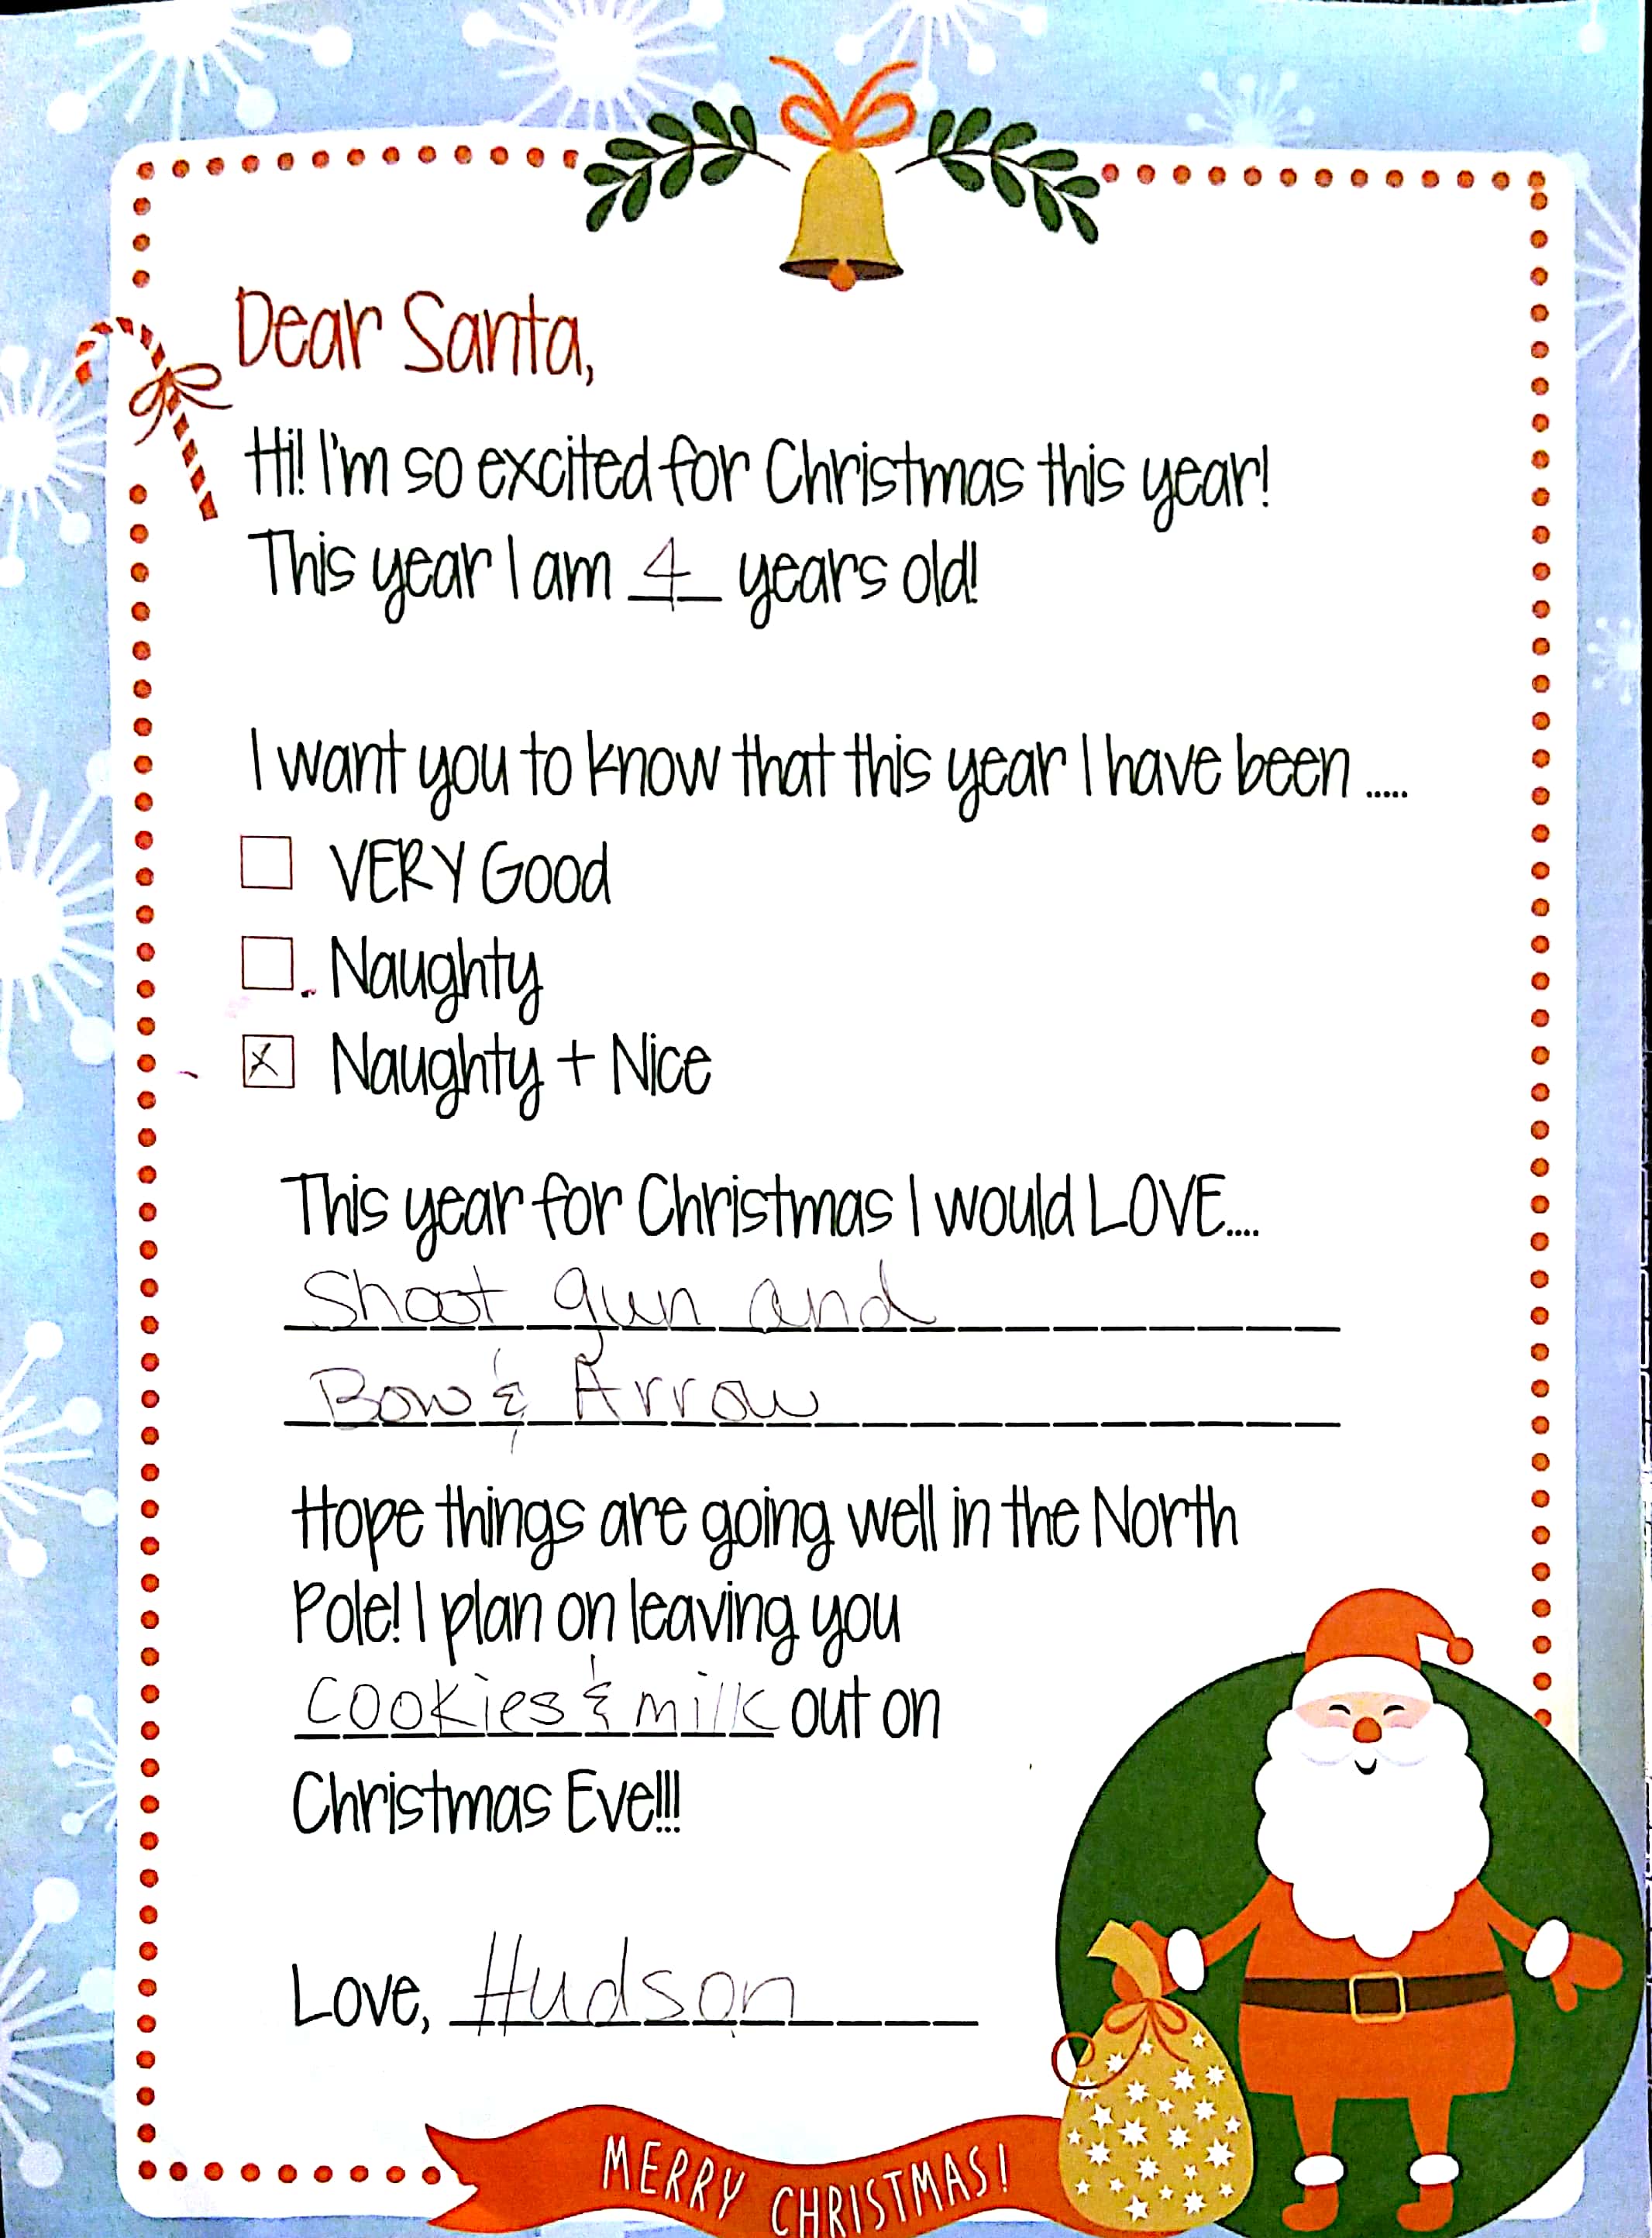 Dear Santa,
Hi! I'm so excited for Christmas this year!
This year I am 4 years old!
I want you to know that this year I have been .....
VERY Good
Naughty
X Naughty + Nice
This year for Christmas I would LOVE....
Shoot gun and
Bow & Arrow
Hope things are going well in the North
Pole! I plan on leaving you
cookies & milk out on
Christmas Eve!!!
Love, Hudson
MERRY CHRISTMAS!